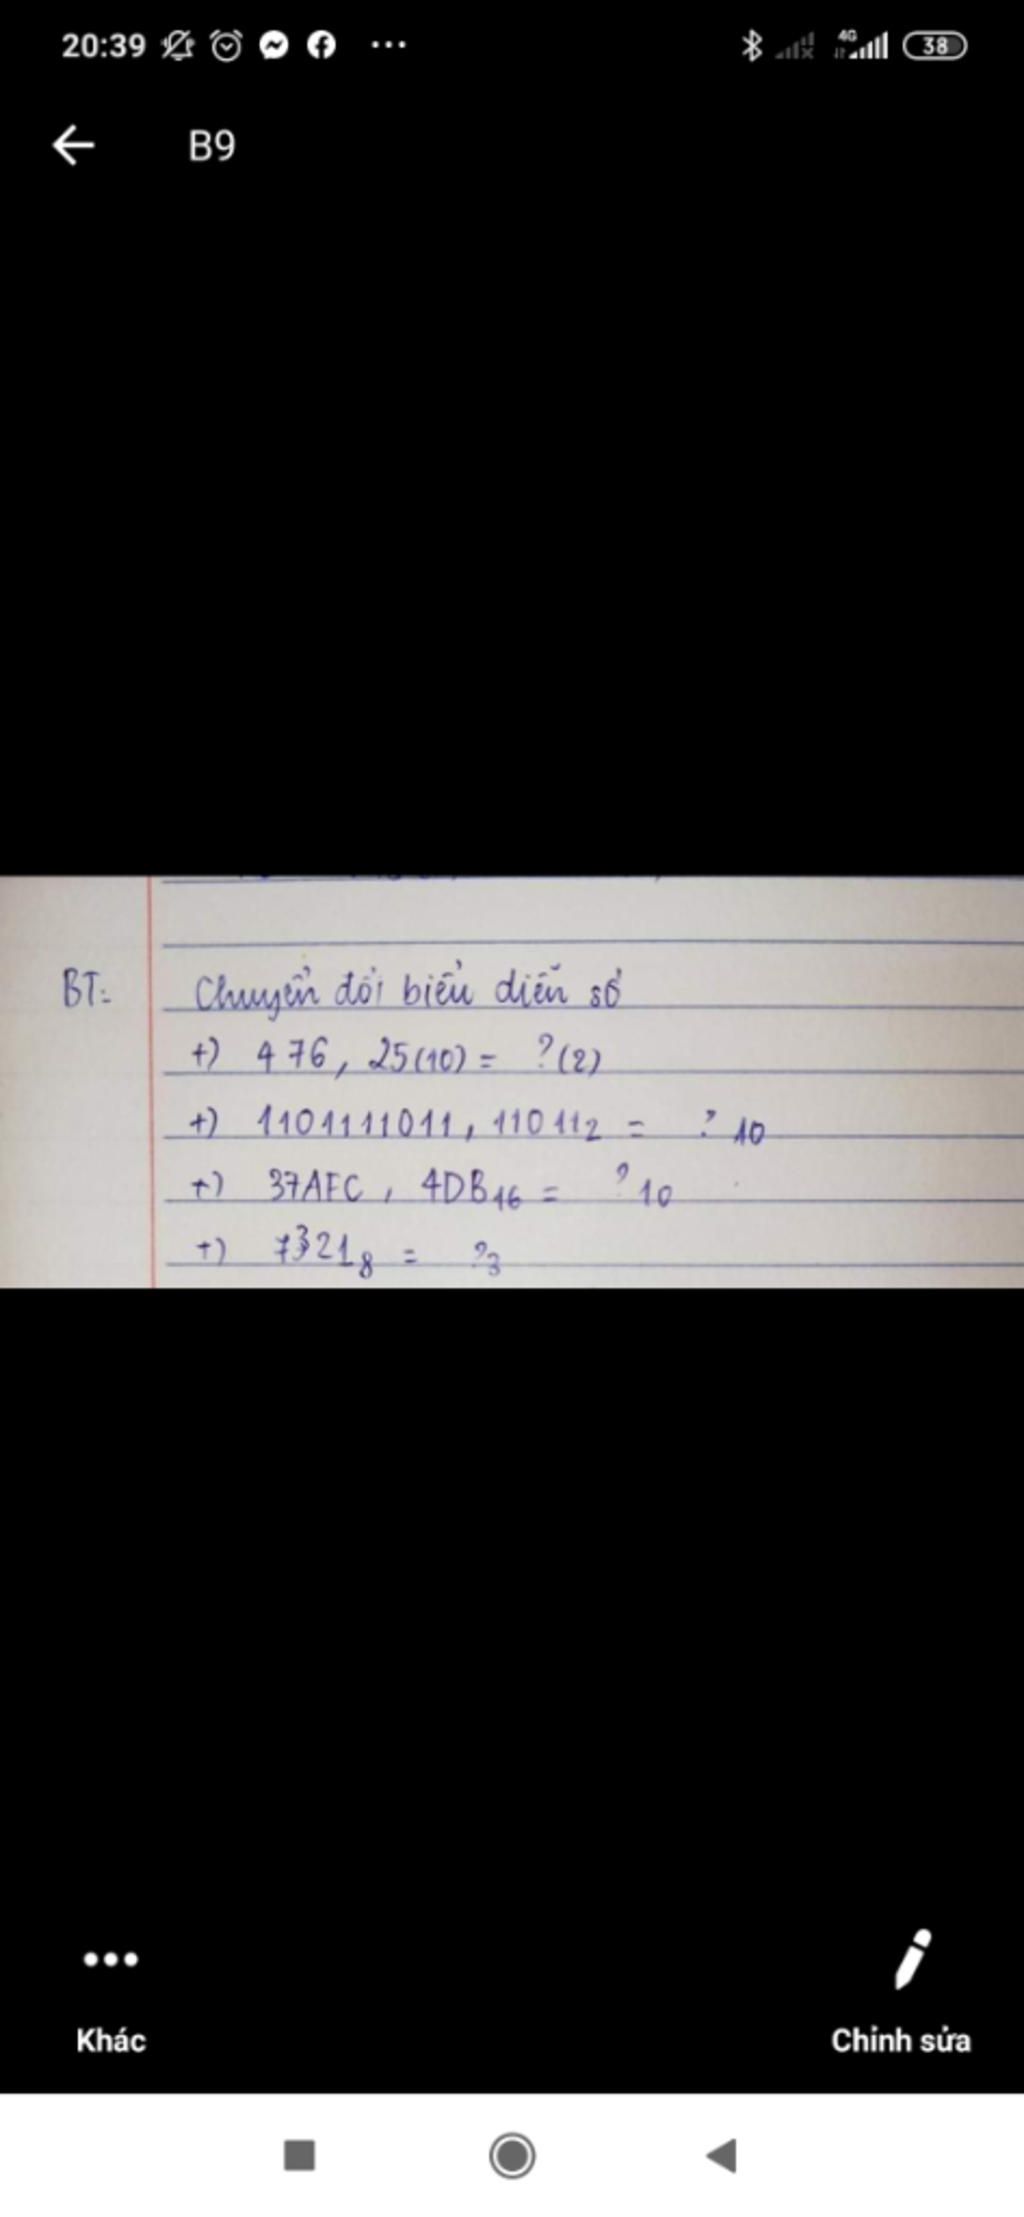 20:39 ... 4G 38
B9
BT: Chuyển đổi biểu diễn số
+) 476, 25(10) = ?(2)
+) 1101111011, 11011₂ = ? 10
+) 37AFC, 4DB₁₆ = ?10
+) 7321₈ = ?₃
Khác
Chỉnh sửa